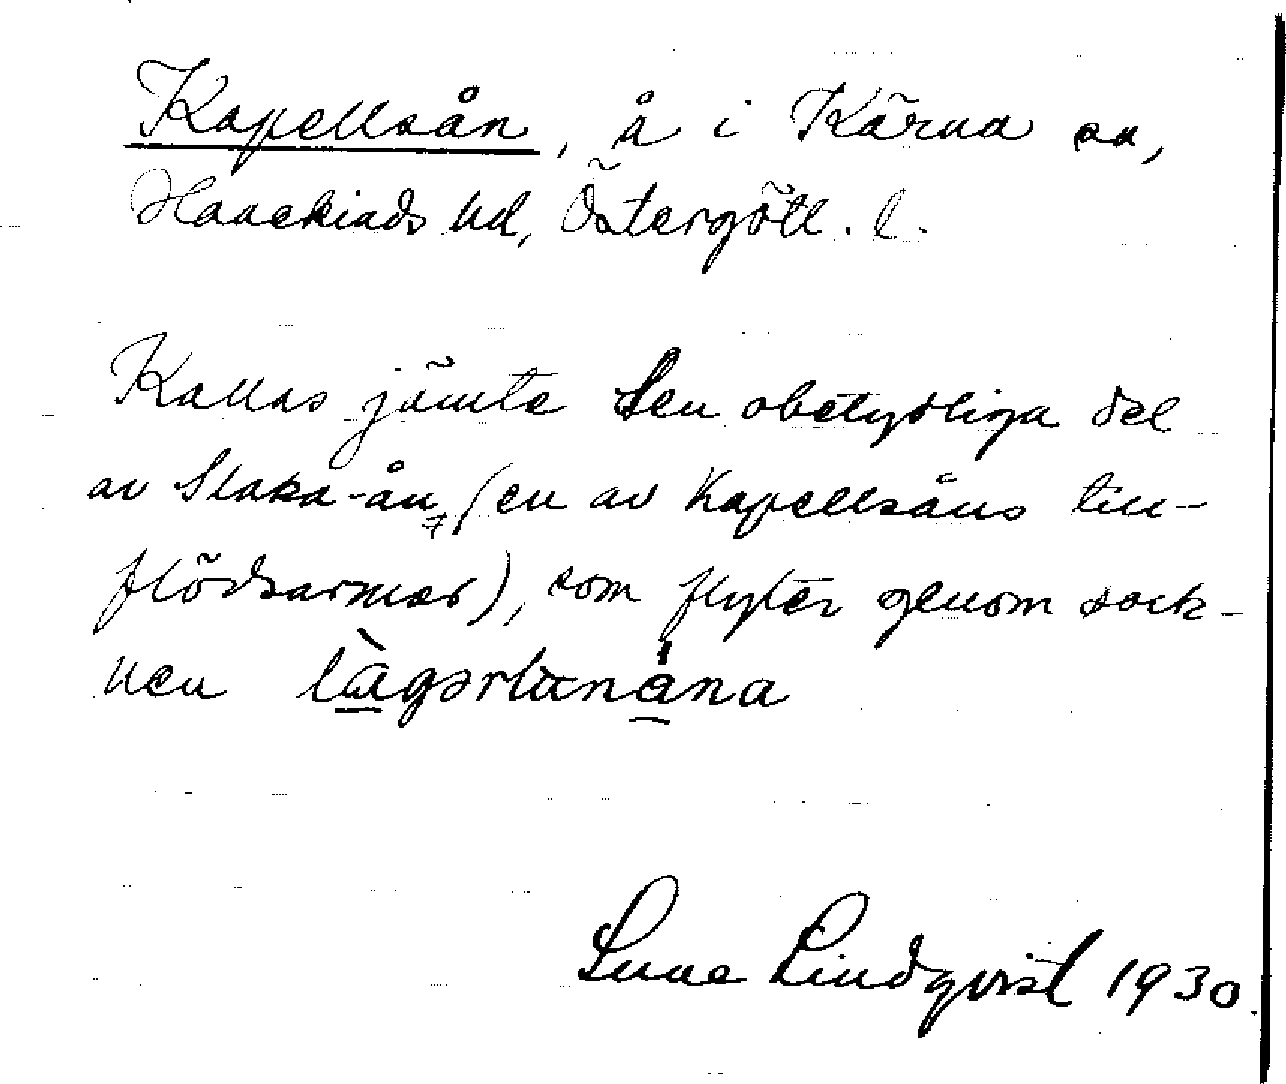 Kapellsån, å i Kärna sn,
Hanekinds hd, Östergötl. l.
Kallas jämte den obetydliga del
av Slaka-ån (en av Kapellsåns till-
flödsarmar), som flyter genom sock-
nen làgərlᴜnána
Sune Lindqvist 1930.